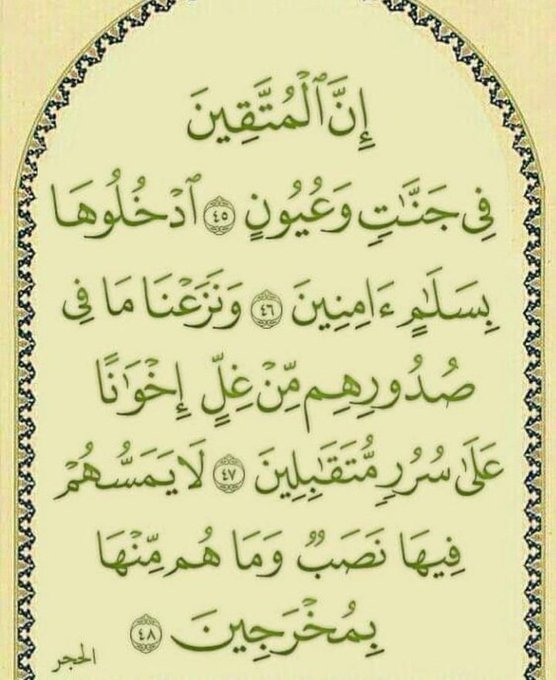 إِنَّ ٱلْمُتَّقِينَ
فِى جَنَّٰتٍ وَعُيُونٍ ٤٥ ٱدْخُلُوهَا
بِسَلَٰمٍ ءَامِنِينَ ٤٦ وَنَزَعْنَا مَا فِى
صُدُورِهِم مِّنْ غِلٍّ إِخْوَٰنًا
عَلَىٰ سُرُرٍ مُّتَقَٰبِلِينَ ٤٧ لَا يَمَسُّهُمْ
فِيهَا نَصَبٌ وَمَا هُم مِّنْهَا
بِمُخْرَجِينَ ٤٨
الحجر